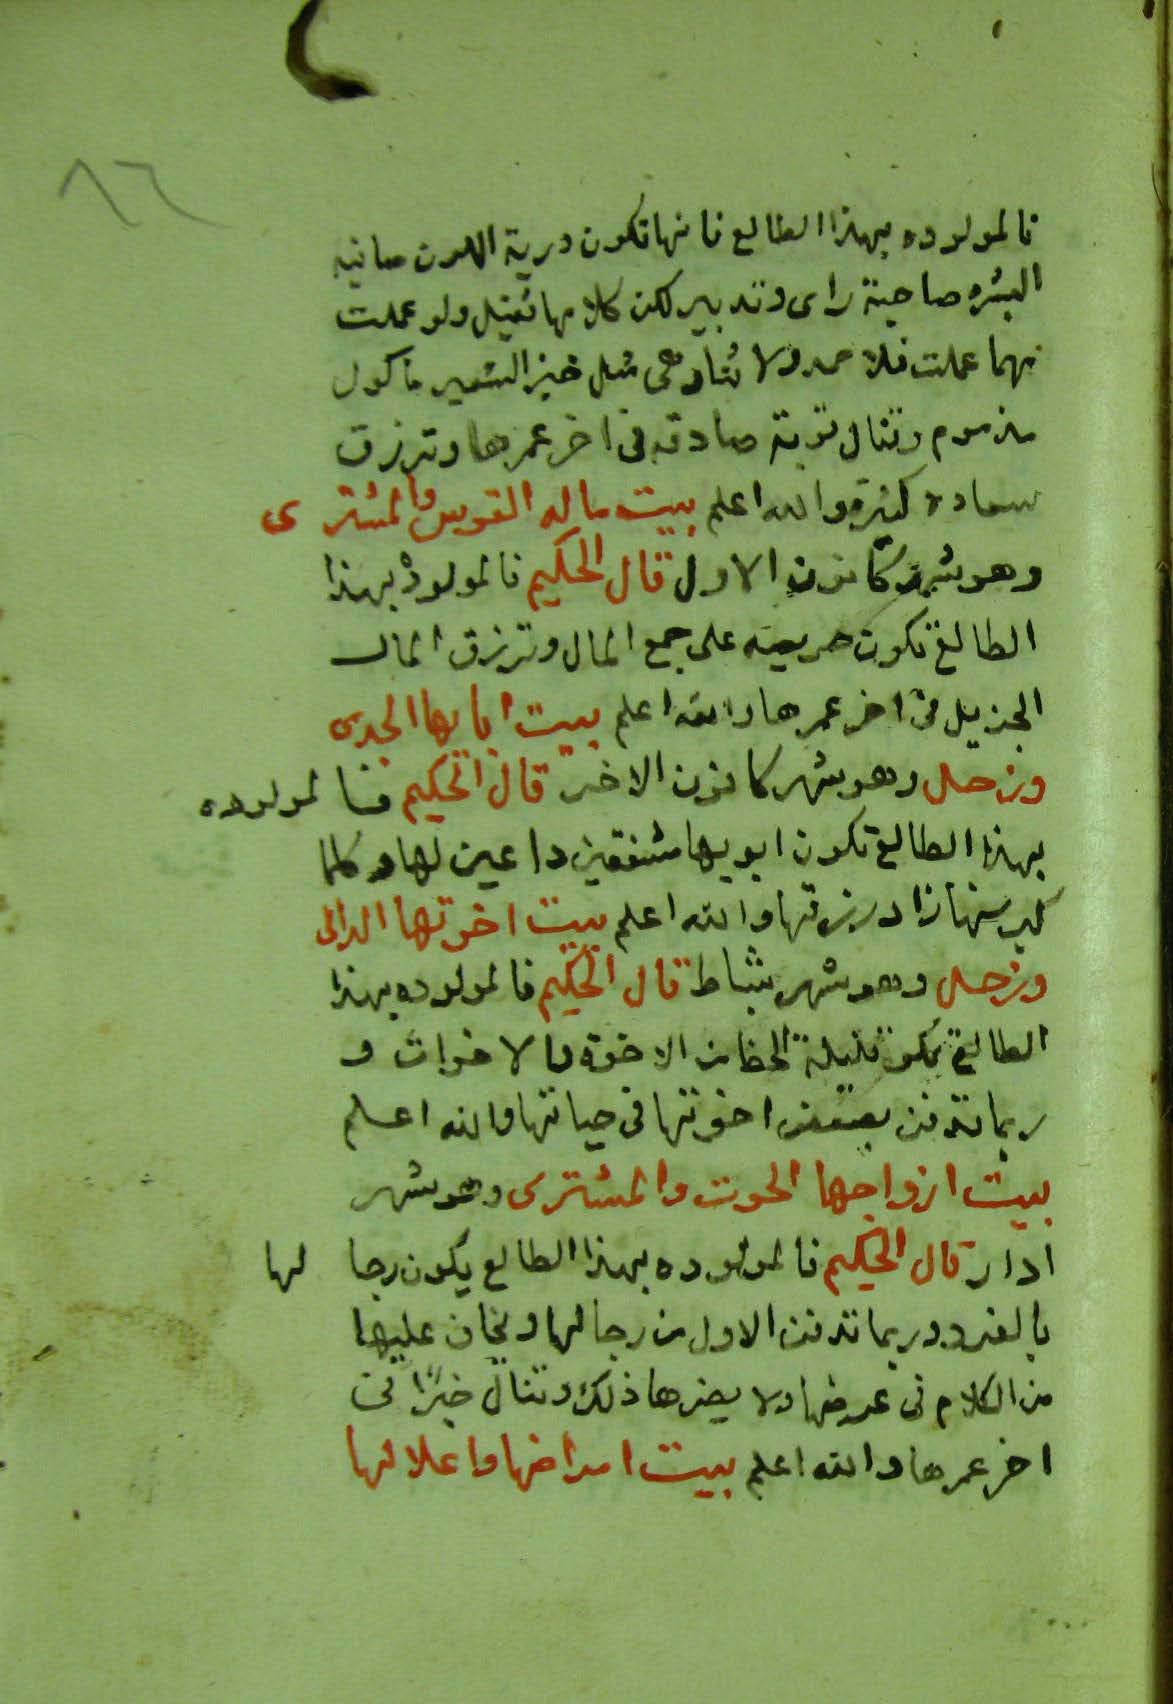 ٨٦
فالمولوده بهذا الطالع فانها تكون درية اللون صافيه
البشره صاحبة راى وتدبير لكن كلامها ثقيل ولو عملت
مهما عملت فلا حمد ولا ثنا وهى مثل خبز الشعير ماكول
مذموم وتنال توبة صادقه فى اخر عمرها وترزق
سعاده كثيره والله اعلم بيت ماله القوس والمشترى
وهو شهر كانون الاول قال الحكيم فالمولوده بهذا
الطالع تكون حريصه على جمع المال وترزق المال
الجزيل فى اخر عمرها والله اعلم بيت ابايها الجدى
وزحل وهو شهر كانون الاخر قال الحكيم فالمولوده
بهذا الطالع تكون ابويها مشفقين داعين لها وكلما
كبر سنها زاد رزقها والله اعلم بيت اخوتها الدالى
وزحل وهو شهر شباط قال الحكيم فالمولوده بهذا
الطالع تكون قليلة الحظ من الاخوة والاخوات و
ربما تدفن بعض اخوتها فى حياتها والله اعلم
بيت ازواجها الحوت والمشترى وهو شهر
ادار قال الحكيم فالمولوده بهذا الطالع يكون رجالها
بالفرد وربما تدفن الاول من رجالها ويخاف عليها
من الكلام فى عرضها ولا يضرها ذلك وتنال خيرًا فى
اخر عمرها والله اعلم بيت امراضها واعلالها